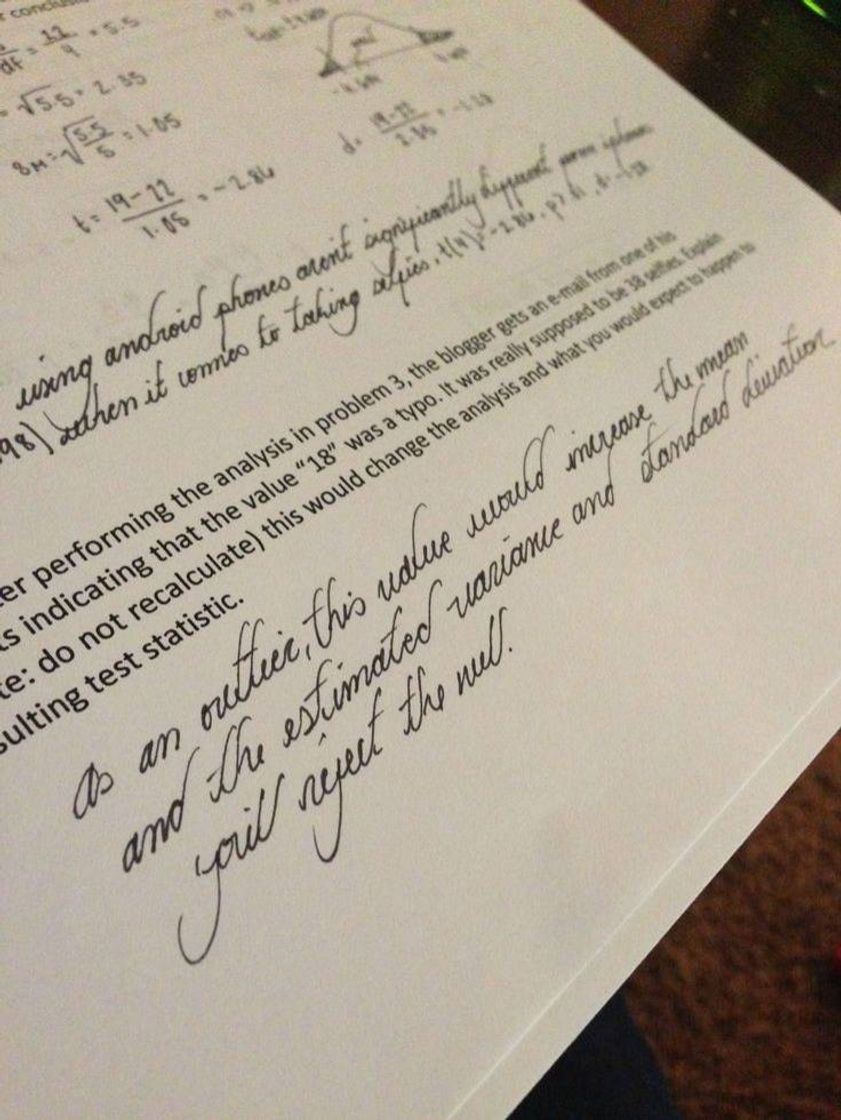 conclusi
df = 12/4 = 5.5
= √5.5 = 2.35
SM = √5.5/5 = 1.05
d = 19-22/2.35 = -1.28
t = 19-22/1.05 = -2.86
using android phones arent significantly different
.98) when it comes to taking selfies. t(4) = -2.86, p>.01, d=-1.28
er performing the analysis in problem 3, the blogger gets an e-mail from one of his
ts indicating that the value "18" was a typo. It was really supposed to be 38 selfies. Explain
te: do not recalculate) this would change the analysis and what you would expect to happen to
sulting test statistic.
As an outlier, this value would increase the mean
and the estimated variance and standard deviation
you'll reject the null.